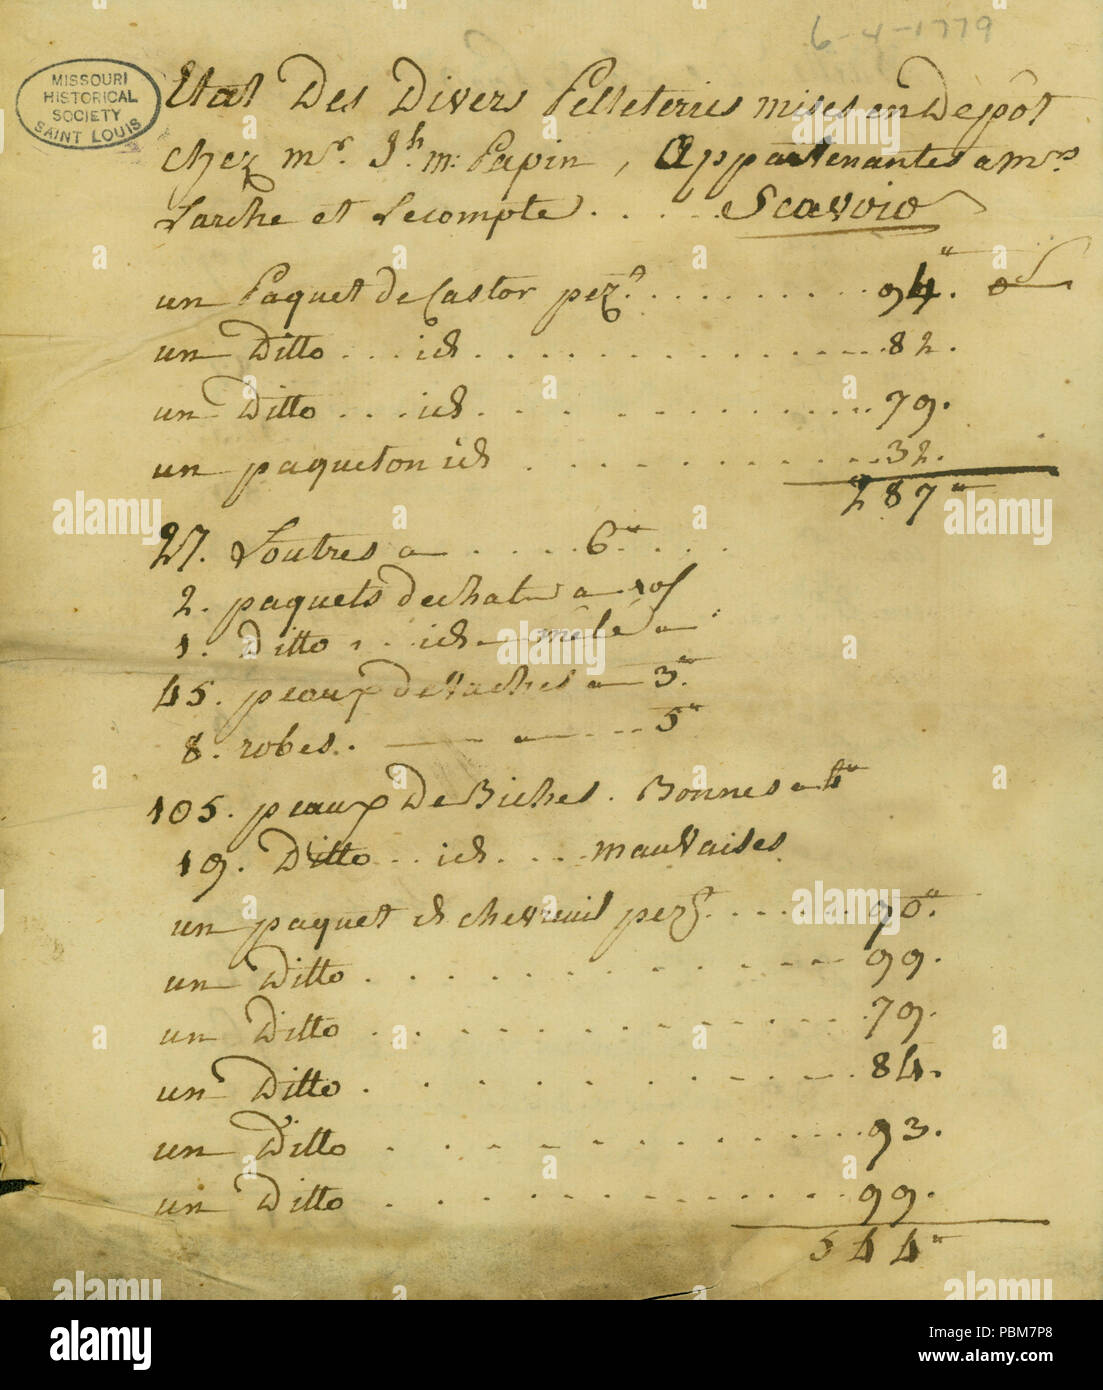 6-4-1779
MISSOURI
HISTORICAL
SOCIETY
SAINT LOUIS
Etat Des Divers Pelleteries mises en Depôt
chez mr. Jh. m: Papin, Appartenantes a mrs
Larche et Lecompte ..... Scavoir
un Paquet de Castor pezt. ......... 94.
un Ditto ... id ............... 82.
un Ditto ... id ............... 79.
un paqueton id ............ 32.
287
27. Loutres a .... 6 ...
2. paquets de chat a 10
1. Ditto ... id mêlé a
45. peaux de Vaches a 3
8. robes. a ... 5
105. peaux De Biches. Bonnes a 4
19. Ditto .. id .... mauvaises.
un paquet d chevreuil pezt. ...... 90.
un Ditto ............ 99.
un Ditto ............ 79.
un Ditto ............ 84.
un Ditto ............ 93.
un Ditto ............ 99.
544
alamy
alamy stock photo
PBM7P8
www.alamy.com